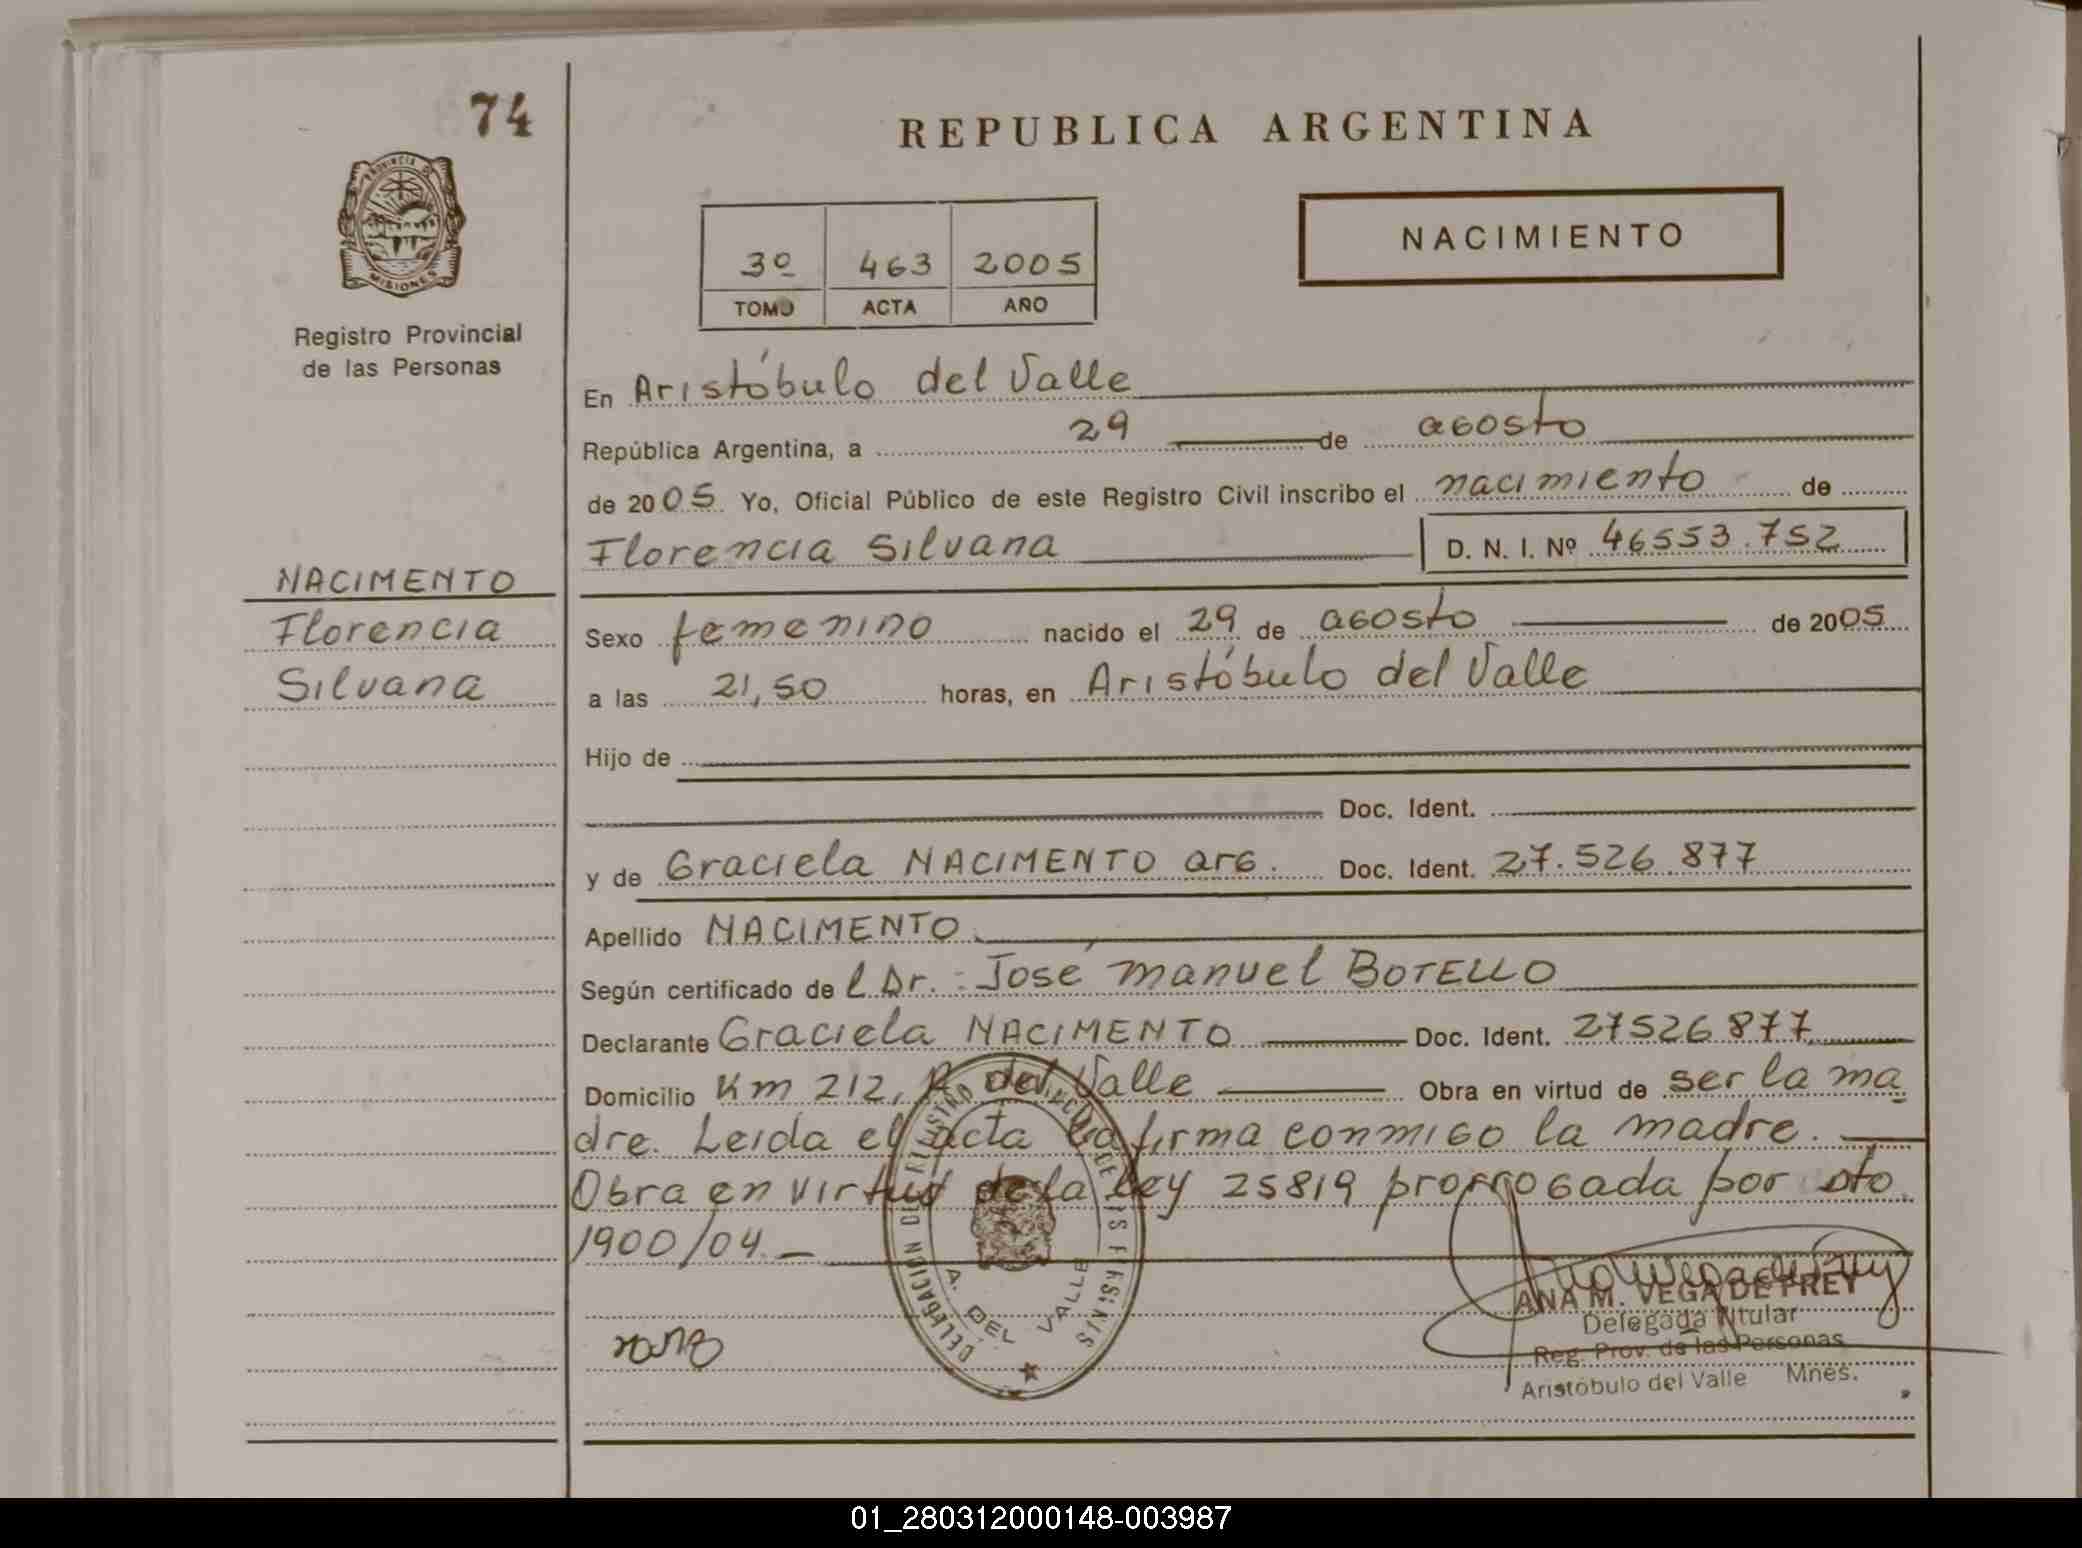 74
PROVINCIA DE
MISIONES
Registro Provincial
de las Personas
NACIMENTO
Florencia
Silvana
REPUBLICA ARGENTINA
3º 463 2005
TOMO ACTA AÑO
NACIMIENTO
En Aristóbulo del Valle
República Argentina, a 29 de agosto
de 2005 Yo, Oficial Público de este Registro Civil inscribo el nacimiento de
Florencia Silvana D. N. I. Nº 46553.752
Sexo femenino nacido el 29 de agosto de 2005
a las 21,50 horas, en Aristóbulo del Valle
Hijo de
Doc. Ident.
y de Graciela NACIMENTO arg. Doc. Ident. 27.526.877
Apellido NACIMENTO
Según certificado del Dr. : José manuel BOTELLO
Declarante Graciela NACIMENTO Doc. Ident. 27526877
Domicilio Km 212, A. del Valle Obra en virtud de ser la ma
dre. Leida el acta la firma conmigo la madre.
Obra en virtud de la ley 25819 prorrogada por dto
1900/04.
A. DEL VALLE
ANA M. VEGA DE FREY
Delegada Titular
Reg. Prov. de las Personas
Aristóbulo del Valle Mnes.
01_280312000148-003987